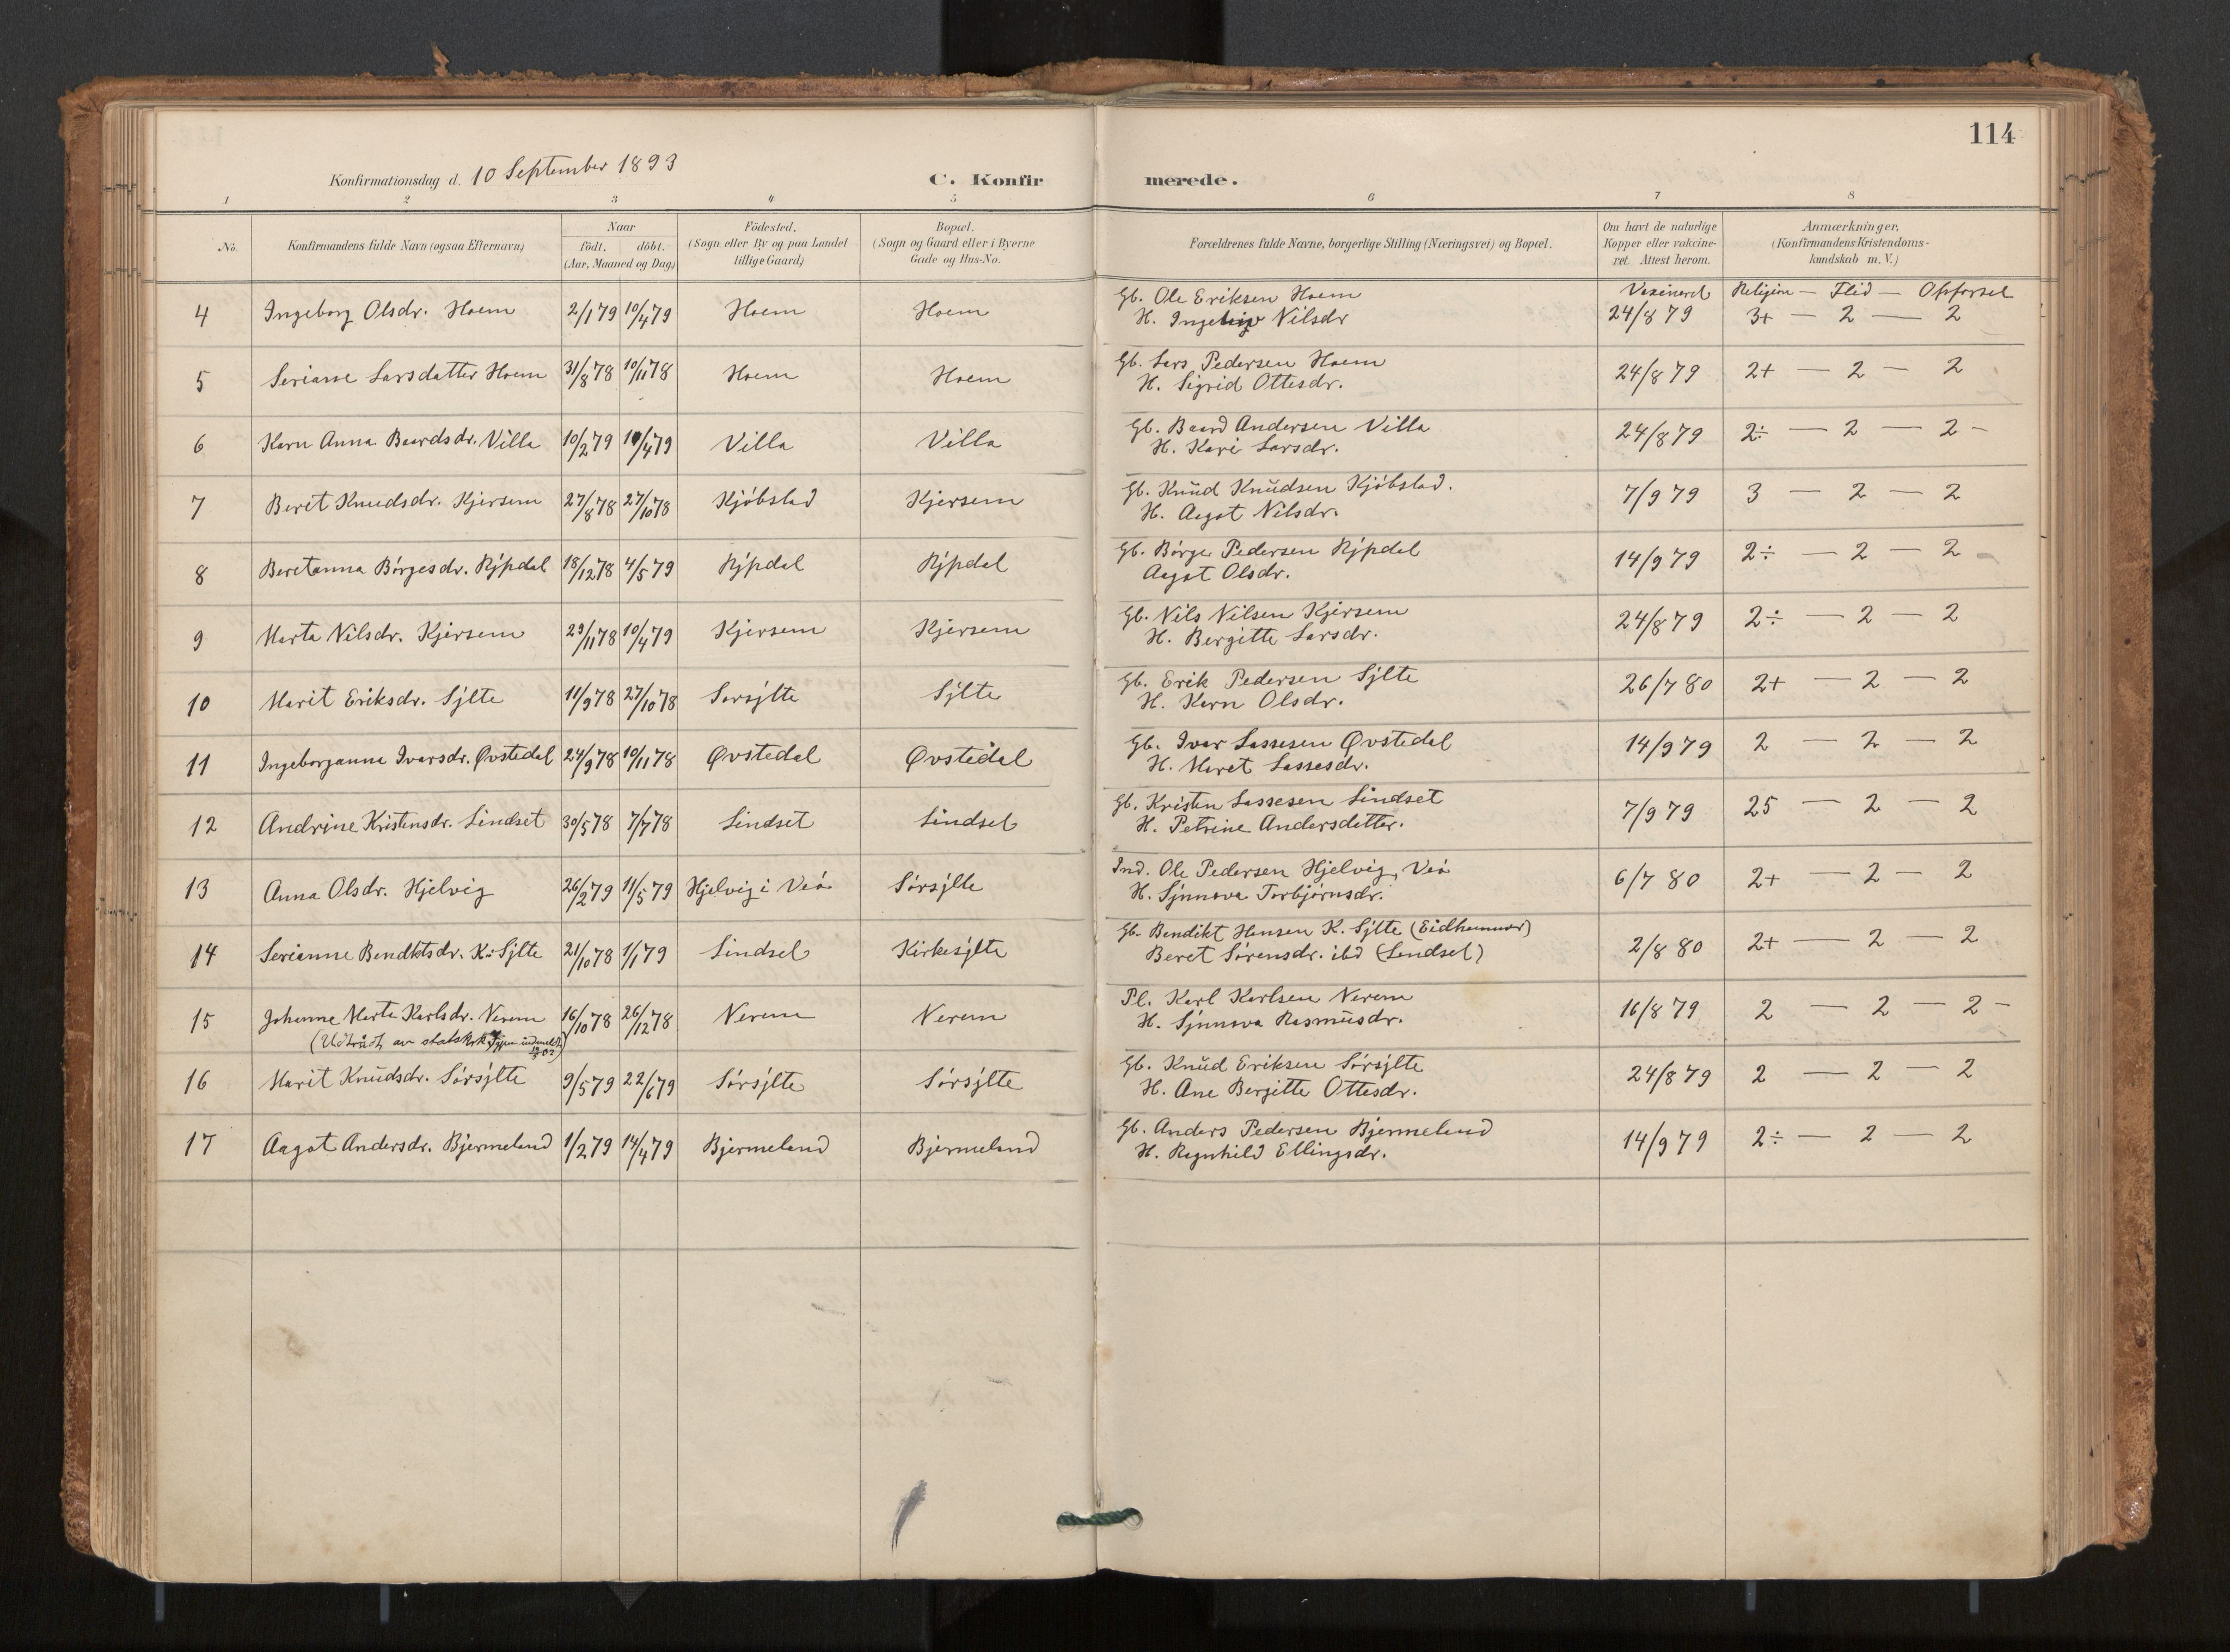 114
Konfirmationsdag d. 10 September 1893 C. Konfirmerede.
1 2 3 4 5 6 7 8
No. Konfirmandens fulde Navn (ogsaa Efternavn) Naar födt. döbt. (Aar, Maaned og Dag.) Födested. (Sogn eller By og paa Landet tillige Gaard) Bopæl. (Sogn og Gaard eller i Byerne Gade og Hus-No. Forældrenes fulde Navne, borgerlige Stilling (Næringsvei) og Bopæl. Om havt de naturlige Kopper eller vakcineret. Attest herom. Anmærkninger. (Konfirmandens Kristendomskundskab m. V.)
Vaxineret Religion — Flid — Opförsel
4 Ingeborg Olsdr. Hoem 2/1 79 10/4 79 Hoem Hoem Gb. Ole Eriksen Hoem 24/8 79 3+ — 2 — 2
H. Nilsdr
5 Serianne Larsdatter Hoem 31/8 78 10/11 78 Hoem Hoem Gb. Lars Pedersen Hoem 24/8 79 2+ — 2 — 2
H. Sigrid Ottesdr.
6 Karn Anna Baardsdr. Villa 10/2 79 10/4 79 Villa Villa Gb. Baard Andersen Villa 24/8 79 2÷ — 2 — 2 -
H. Kari Larsdr.
7 Berit Knudsdr. Kjersem 27/8 78 27/10 78 Kjöbstad Kjersem Gb. Knud Knudsen Kjöbstad. 7/9 79 3 — 2 — 2
H. Aagot Nilsdr.
8 Beretanna Börgesdr. Rÿpdal 18/12 78 4/5 79 Rÿpdal Rÿpdal Gb. Börge Pedersen Rÿpdal 14/9 79 2÷ — 2 — 2
Aagot Olsdr.
9 Marta Nilsdr. Kjersem 29/11 78 10/4 79 Kjersem Kjersem Gb. Nils Nilsen Kjersem 24/8 79 2÷ — 2 — 2
H. Bergitte Larsdr.
10 Marit Eriksdr. Sÿlte 11/9 78 27/10 78 Sörsÿlte Sÿlte Gb. Erik Pedersen Sÿlte 26/7 80 2+ — 2 — 2
H. Karn Olsdr.
11 Ingeborganna Ivarsdr. Øvstedal 24/9 78 10/11 78 Øvstedal Øvstedal Gb. Ivar Lassesen Øvstedal 14/9 79 2 — 2 — 2
H. Maret Lassesdr.
12 Andrine Kristensdr. Lindset 30/5 78 7/7 78 Lindset Lindset Gb. Kristen Lassesen Lindset 7/9 79 25 — 2 — 2
H. Petrine Andersdatter.
13 Anna Olsdr. Hjelvig 26/2 79 11/5 79 Hjelvig i Veö Sörsÿlte Ind. Ole Pedersen Hjelvig, Veö 6/7 80 2+ — 2 — 2
H. Sÿnnöva Torbjörnsdr.
14 Serianne Bendiktsdr. K. Sÿlte 21/10 78 1/1 79 Lindset Kirkesÿlte Gb. Bendikt Hansen K. Sÿlte (Eidhammer) 2/8 80 2+ — 2 — 2
Beret Sörensdr. ibd (Lindset)
15 Johanne Marta Karlsdr. Nerem 16/10 78 26/12 78 Nerem Nerem Pl. Karl Karlsen Nerem 16/8 79 2 — 2 — 2 -
H. Sÿnnöva Rasmusdr.
(Udtrådt av statskirk
16 Marit Knudsdr. Sörsÿlte 9/5 79 22/6 79 Sörsÿlte Sörsÿlte Gb. Knud Eriksen Sörsÿlte 24/8 79 2 — 2 — 2
H. Ane Bergitte Ottesdr.
17 Aagot Andersdr. Bjermeland 1/2 79 14/4 79 Bjermeland Bjermeland Gb. Anders Pedersen Bjermeland 14/9 79 2÷ — 2 — 2
H. Ragnhild Ellingsdr.